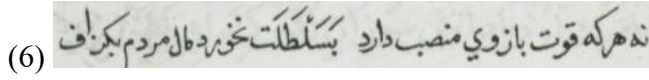 (6) نه هرکه قوت بازوي منصب دارد بَسَلْطَلَت نخورد مال مردم بکزاف